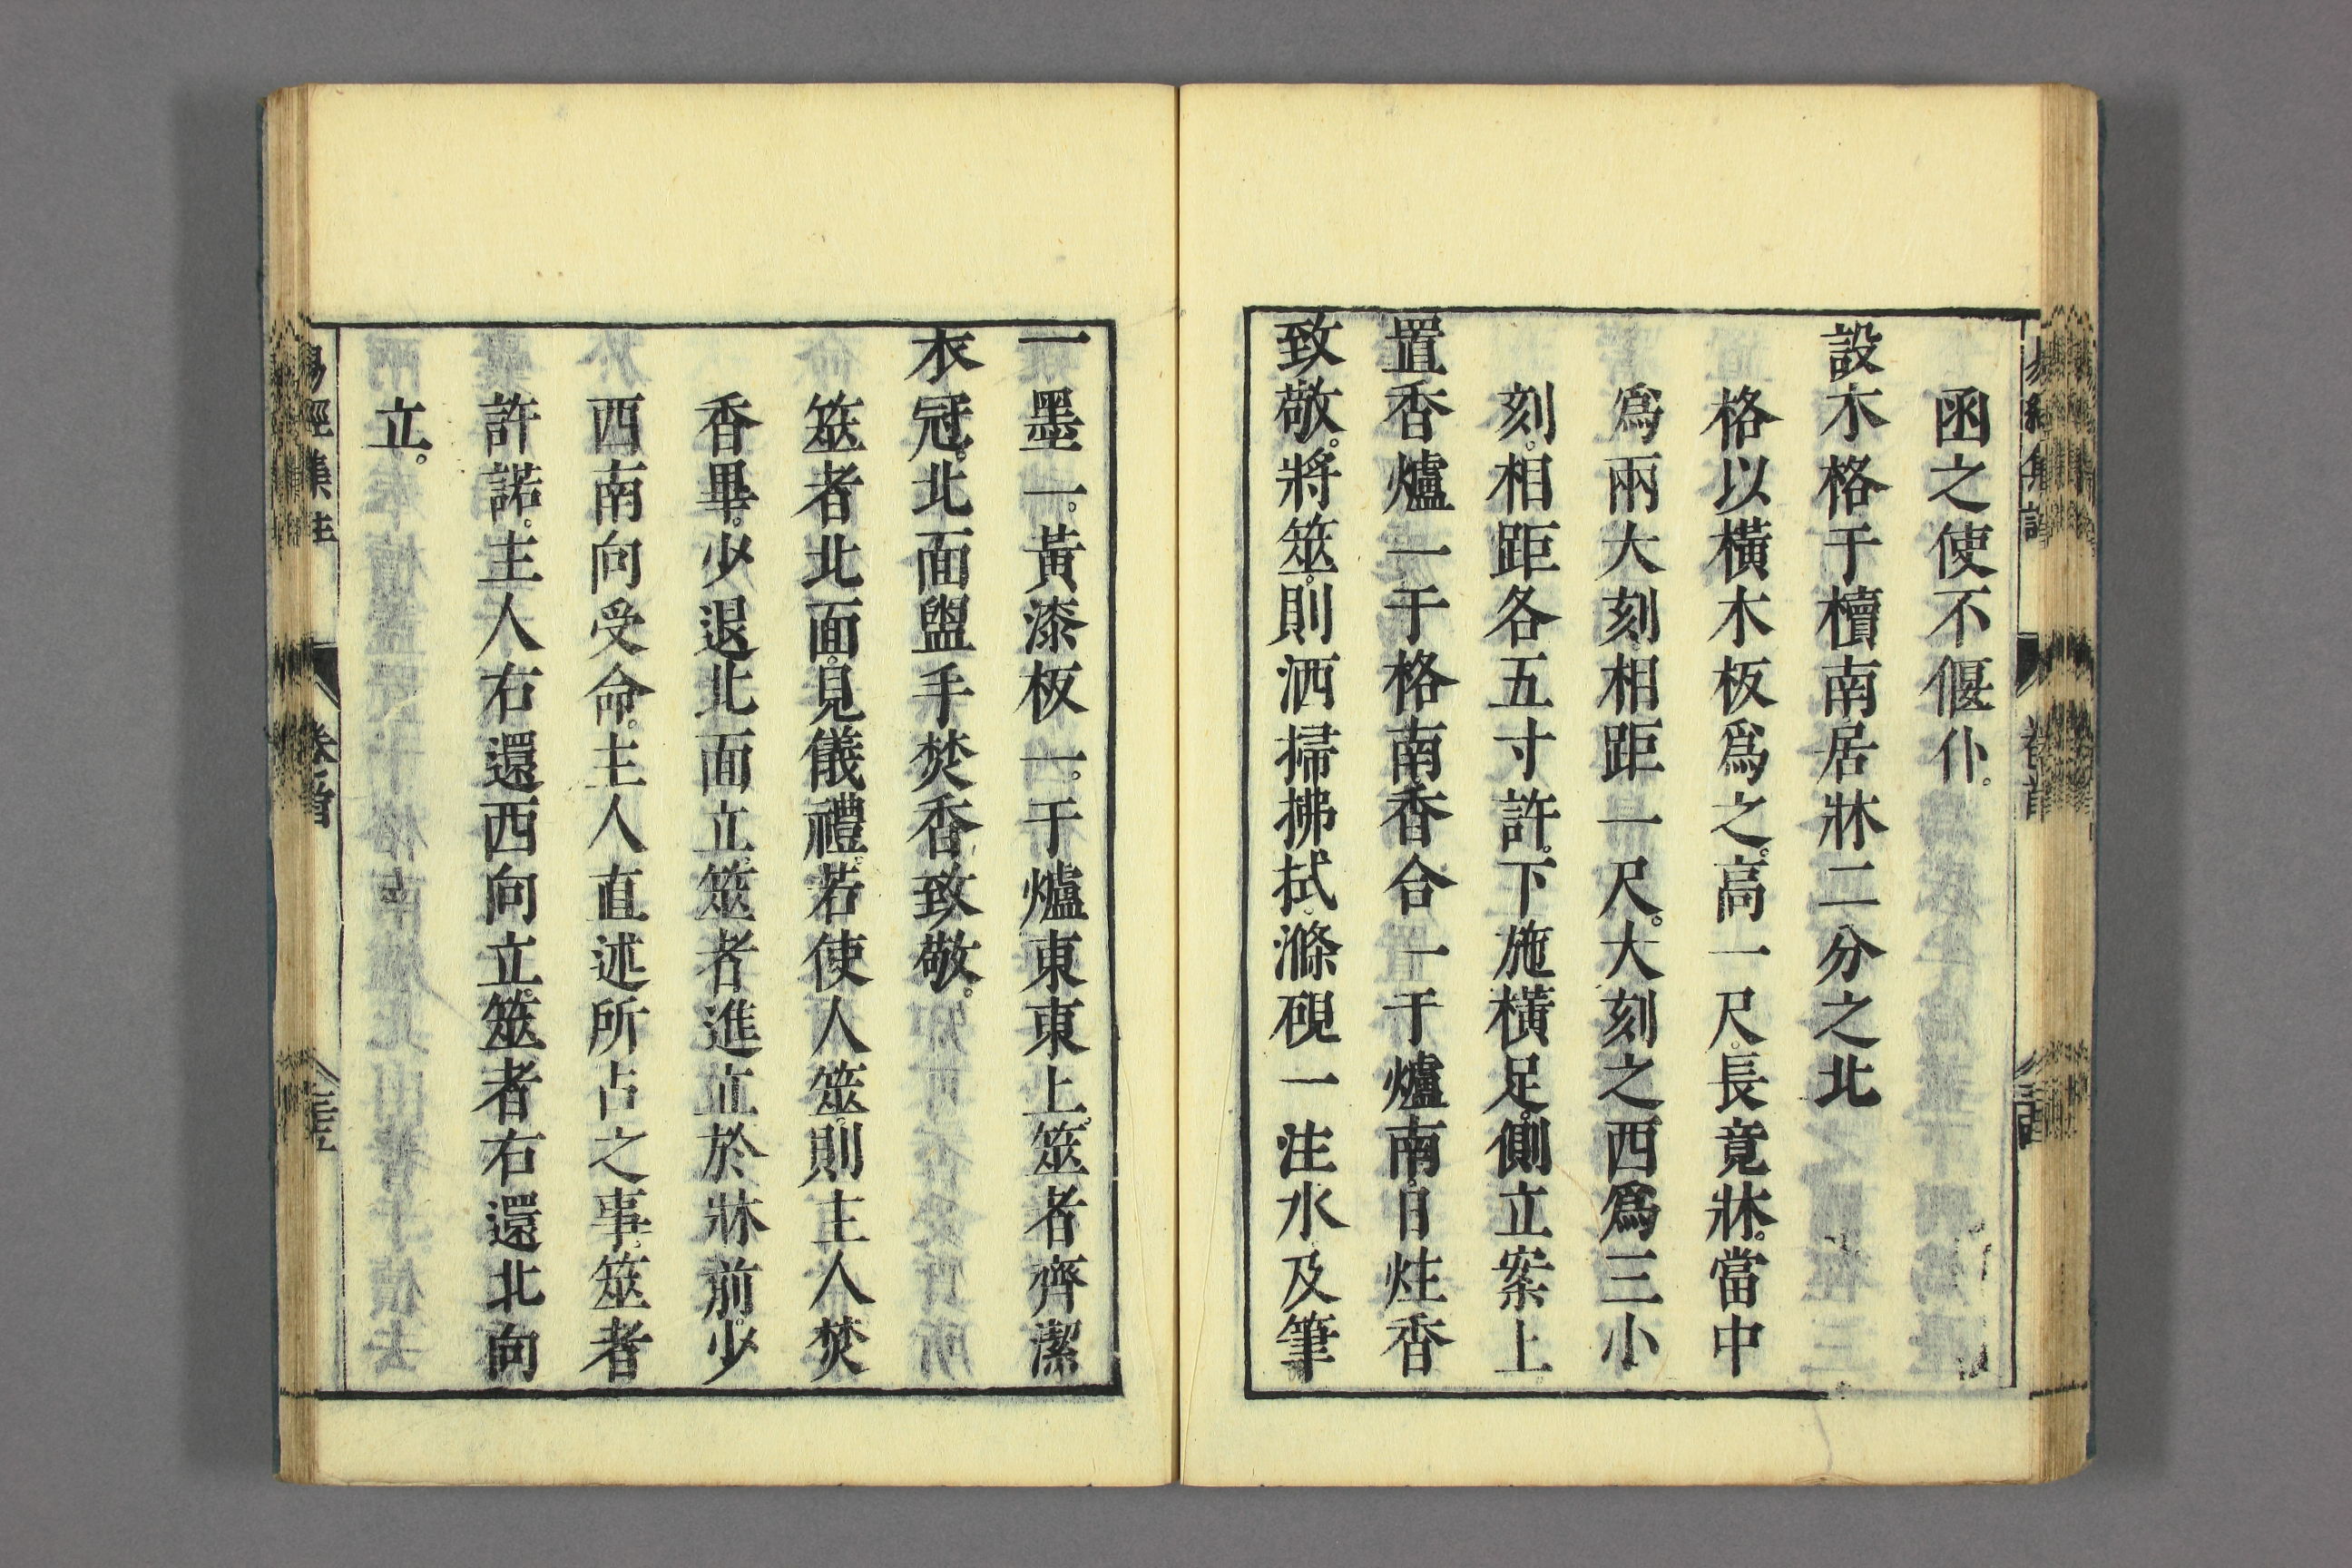 函之使不偃仆。
設木格于櫝南居牀二分之北
格以橫木板爲之。高一尺。長竟牀。當中
爲兩大刻。相距一尺。大刻之西爲三小
刻。相距各五寸許。下施橫足。側立案上。
置香爐一于格南香合一于爐南。日炷香
致敬。將筮。則洒掃拂拭。滌硯一注水及筆
一墨一。黃漆板一。于爐東東上。筮者齊潔
衣冠。北面盥手焚香致敬。
筮者北面。見儀禮。若使人筮。則主人焚
香畢。少退北面立。筮者進立於牀前。少
西南向受命。主人直述所占之事。筮者
許諾。主人右還西向立。筮者右還北向
立。
易經集註
卷首
三五